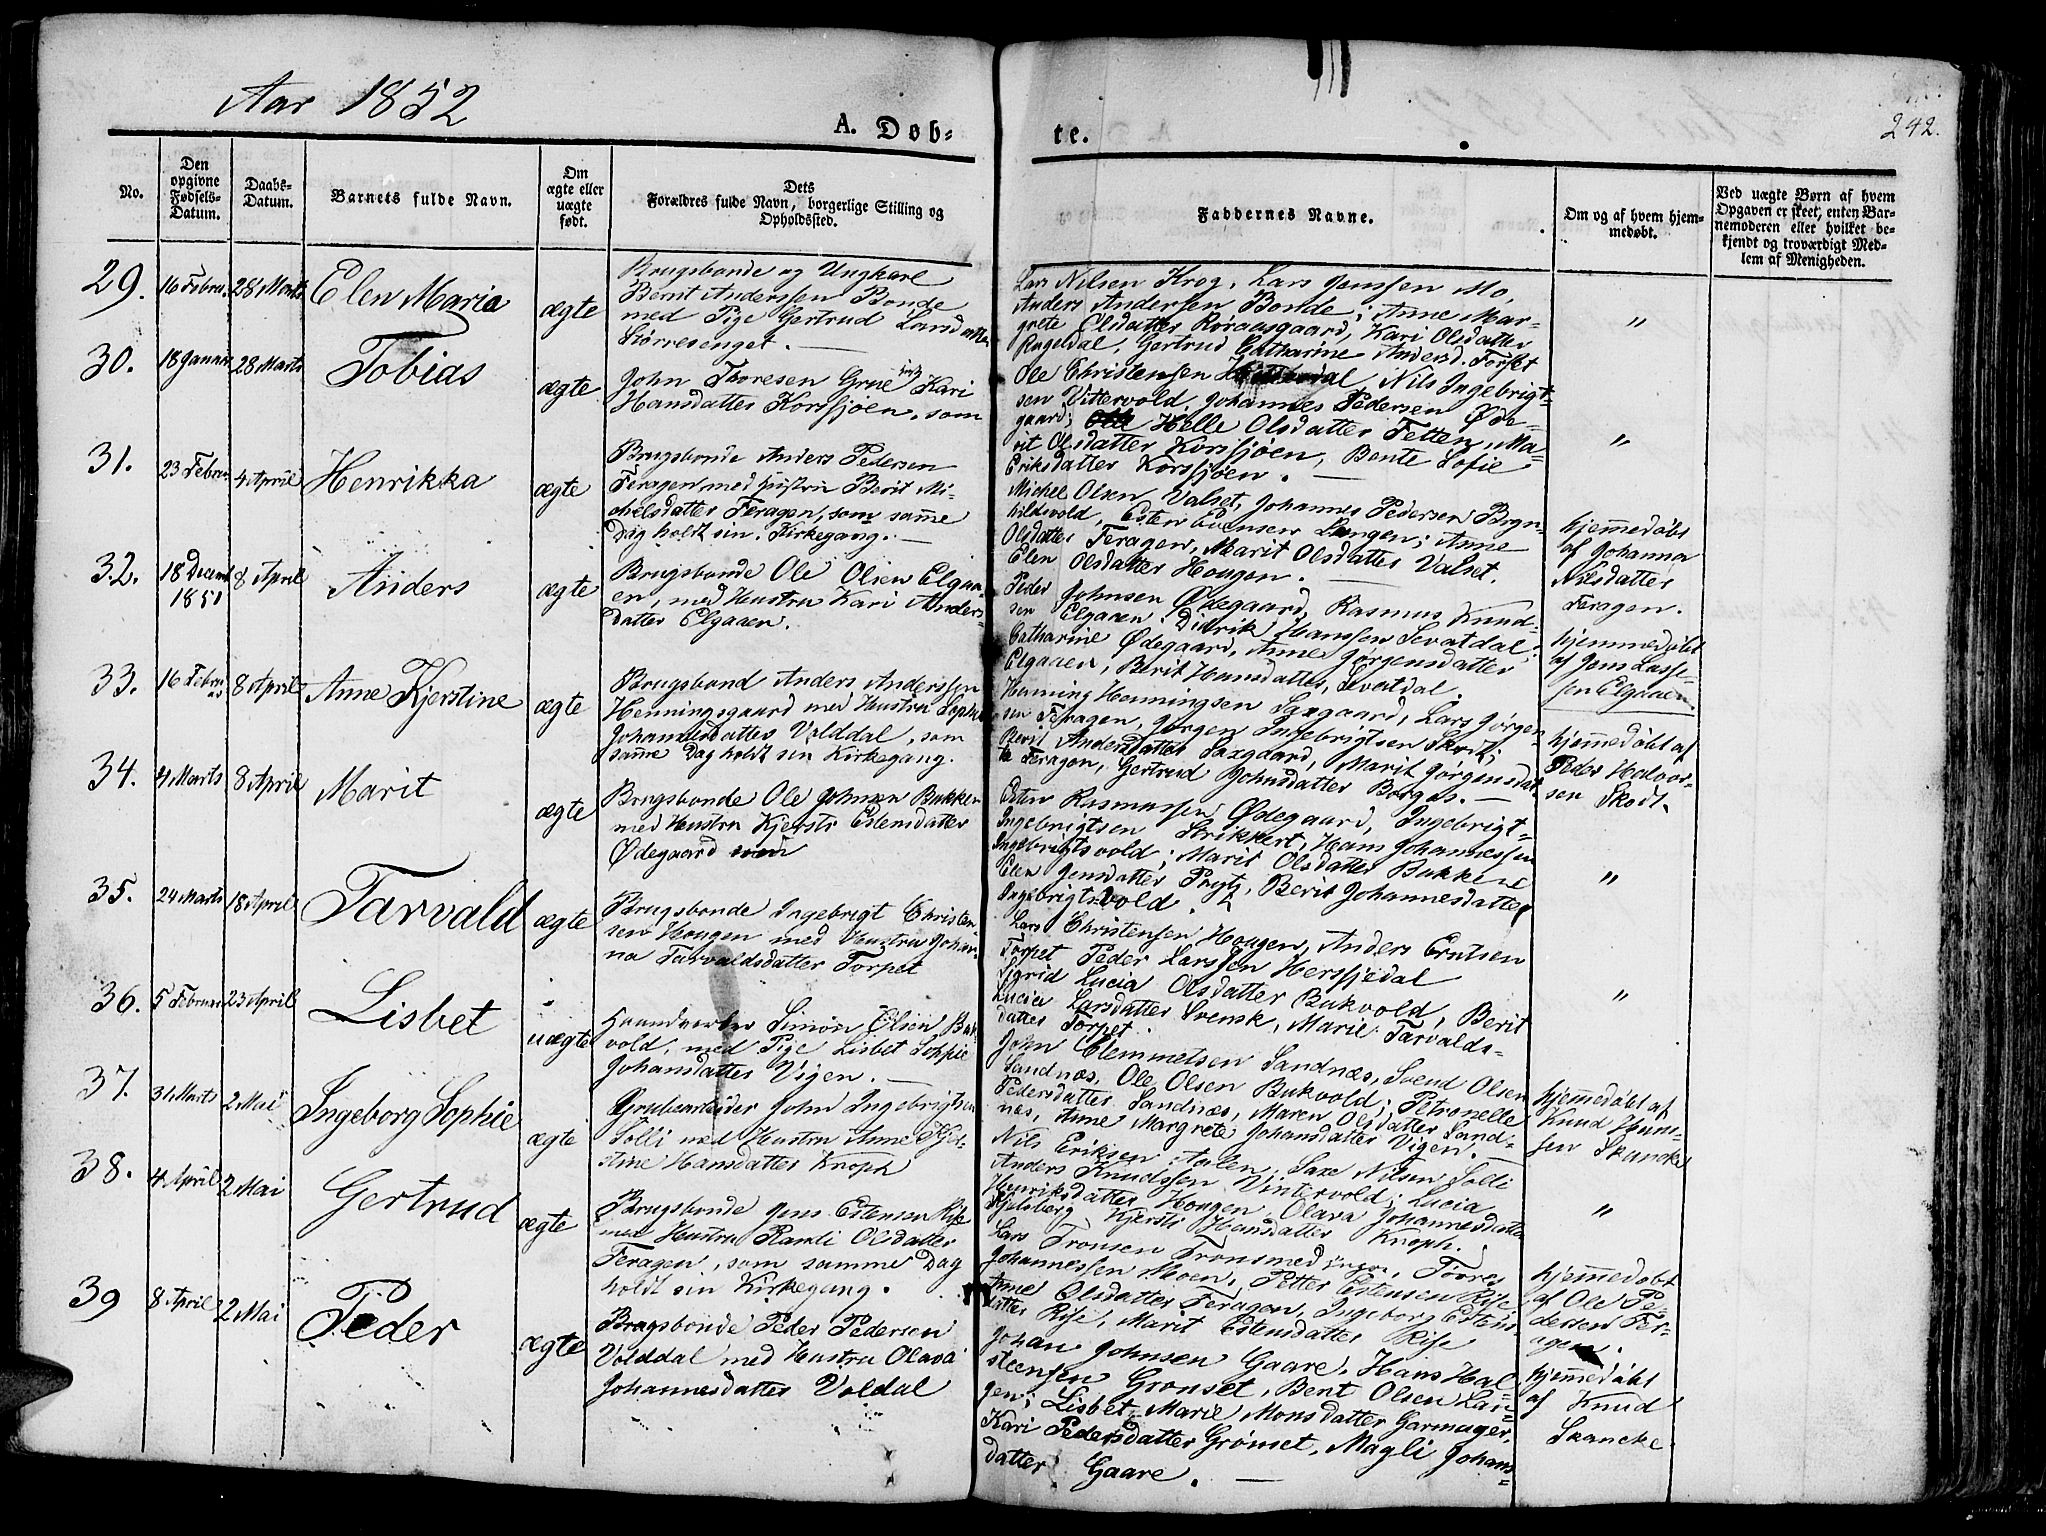 Aar 1852
A. Døb-
te.
242.
No.
Den
opgivne
Fødsels-
Datum.
Daabs-
Datum.
Barnets fulde Navn.
Om
ægte eller
uægte
født.
Dets
Forældres fulde Navn, borgerlige Stilling og
Opholdssted.
Faddernes Navne.
Om og af hvem hjem-
medøbt.
Ved uægte Børn af hvem
Opgaven er skeet, enten Bar-
nemoderen eller hvilket be-
kjendt og troværdigt Med-
lem af Menigheden.
29. 16 Febru. 28 Marts Elen Maria ægte
Brugsbonde og Ungkarl
Bernt Anderssen Bonde
med Pige Gertrud Larsdatter
Størresenget.
Lars Nilsen Krog, Lars Jenssen Mo,
Anders Andersen Bonde; Anne Mar-
grete Olsdatter Røraasgaard, Kari Olsdatter
Rugeldal, Gertrud Catharine Andersd. Torpet
"
30. 18 Januar 28 Marts Tobias ægte
John Thoresen Grue Kari
Hansdatter Korssjøen, som
Ole Christensen Nils Ingebrigt-
sen Vittervold, Johannes Pedersen Øde-
gaard; Helle Olsdatter Tetten, Ma-
rit Olsdatter Korssjøen, Bente Sofie
Eriksdatter Korssjøen.
"
31. 23 Febru. 4 April Henrikka ægte
Brugsbonde Anders Pedersen
Feragen med Hustru Berit Mi-
chelsdatter Feragen, som samme
Dag holdt sin Kirkegang.
Michel Olsen Valset, Johannes Pedersen Bryn-
hildsvold, Esten Evensen Langen; Anne
Olsdatter Feragen, Marit Olsdatter Valset,
Elen Olsdatter Hougen.
hjemmedøbt
af Johanna
Nilsdatter
Feragen.
32. 18 Decem 1851 8 April Anders ægte
Brugsbonde Ole Olsen Elgaa-
en, med Hustru Kari Anders-
datter Elgaaen.
Peder Johnsen Ødegaard, Rasmus Knud-
sen Elgaaen, Didrik Hanssen Sevatdal;
Catharine Ødegaard, Anne Jørgensdatter
Elgaaen, Berit Hansdatter, Sevatdal.
hjemmedøbt
af Jens Lasse-
sen Elgaaen
33. 16 Februar 8 April Anne Kjerstine ægte
Brugsbond Anders Anderssen
Henningsgaard med Hustru Sophie
Johannesdatter Volddal, som
samme Dag holdt sin Kirkegang.
Henning Henningsen Saxgaard, Lars Jørgen-
sen Feragen, Jørgen Ingebrigtsen Skott;
Berit Andersdatter Saxgaard, Marit Jørgensdat-
ter Feragen, Gertrud Johnsdatter Borgos.
hjemmedøbt af
Peder Halvor-
sen Skodt.
34. 4 Marts 8 April Marit ægte
Brugsbonde Ole Johnsen Bakken
med Hustru Kjersti Estensdatter
Ødegaard
Esten Rasmussen Ødegaard, Ingebrigt
Ingebrigtsen Strikkert, Hans Johannessen
Ingebrigtsvold; Marit Olsdatter Bakken
Elen Jensdatter Prytz, Berit Johannesdatter
Ingebrigtsvold.
"
35. 24 Marts 18 April Tarvald ægte
Brugsbonde Ingebrigt Christen-
sen Hougen med Hustru Johan-
na Tarvaldsdatter Torpet
Lars Christensen Hougen, Anders Erntsen
Torpet Peder Larssen Herssjedal
Sigrid Lucia Olsdatter Bukvold, Berit
Lucia Larsdatter Svensk, Marie Tarvalds-
datter Torpet.
"
36. 5 Februar 23 April Lisbet uægte
Haandværker Simon Olsen Buk-
vold, med Pige Lisbet Sophie
Johansdatter Vigen.
John Clemmetsen Sandnæs, Svend Olsen
Sandnæs, Ole Olsen Bukvold; Petronelle
Pedersdatter Sandnæs, Maren Olsdatter Sand-
nes, Anne Margrete Johansdatter Vigen.
37. 31 Marts 2 Mai Ingeborg Sophie ægte
Grubearbeider John Ingebrigtsen
Solli med Hustru Anne Kjer-
stine Hansdatter Knoph
Nils Eriksen Aalen, Saxe Nilsen Solli
Anders Knudssen Vintervold; Lucia
Henriksdatter Hougen, Olava Johannesdatter
Hjelsberg Kjersti Hansdatter Knoph.
hjemmedøbt af
Knud Ham-
sen Skancke
38. 4 April 2 Mai Gertrud ægte
Brugsbonde Jens Estensen Rise
med Hustru Randi Olsdatter
Feragen, som samme Dag
holdt sin Kirkegang.
Lars Tronsen Tronsmed Tørres
Johannessen Moen, Petter Estensen Rise;
Anne Olsdatter Feragen, Ingeborg Estens-
datter Rise, Marit Estensdatter Rise
"
hjemmedøbt
af Ole Pe-
dersen Fer-
agen.
39 8 April 2 Mai Peder ægte
Brugsbonde Peder Pedersen
Volddal med Hustru Olava
Johannesdatter Voldal
Johan Johnsen Gaare, Hans Hal-
steensen Grønset, Bent Olsen Lan-
gen; Lisbet Marie Monsdatter Garmager,
Kari Pedersdatter Grønset, Magli Johans-
datter Gaare.
hjemmedøbt
af Knud
Skancke.